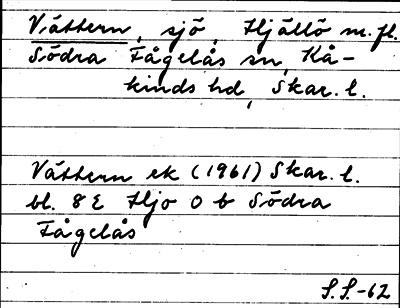 Vättern, sjö, Hjällö m.fl.
Södra Fågelås sn, Kå-
kinds hd, Skar. l.
Vättern ek (1961) Skar. l.
bl. 8 E Hjo 0 b Södra
Fågelås
S.S.-62